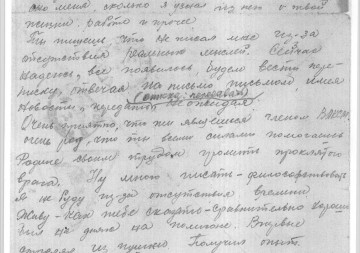 меня, сколько я узнал из него о твоей
жизни, работе и проч.
Ты пишешь, что не писал мне из-за
отсутствия великих мыслей. Сейчас
надеюсь, все появилось, будем вести пере-
писку, отвечая на письмо письмом, имея
новости, передать, не ожидая
Очень приятно, что ты явился членом ВЛКСМ,
очень рад, что ты всеми силами помогаешь
Родине своим трудом громить проклятого
врага. Ну много писать - философствовать
я не буду из-за отсутствия времени
Живу - как тебе сказать - сравнительно хорошо
на днях на полигоне. Впервые
из пушки. Получил опыт.